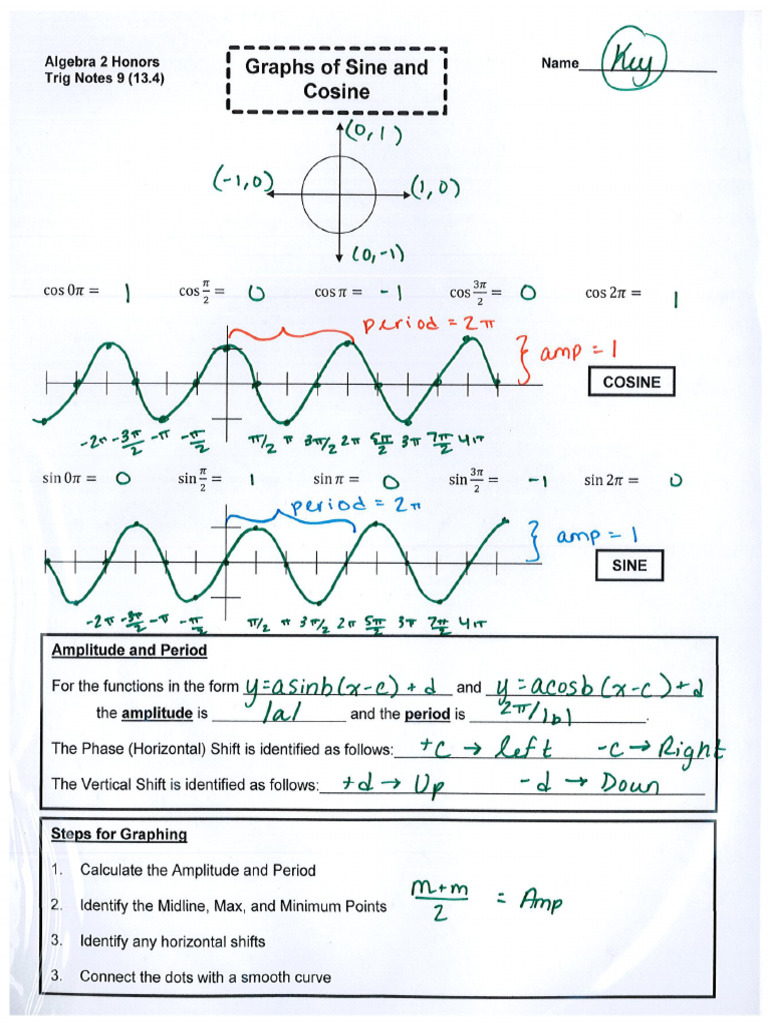 Algebra 2 Honors
Trig Notes 9 (13.4)
Graphs of Sine and
Cosine
Name Key
(0, 1)
(-1, 0)
(1, 0)
(0, -1)
cos 0π = 1 cos π/2 = 0 cos π = -1 cos 3π/2 = 0 cos 2π = 1
period = 2π
amp = 1
COSINE
-2π -3π/2 -π -π/2 π/2 π 3π/2 2π 5π/2 3π 7π/2 4π
sin 0π = 0 sin π/2 = 1 sin π = 0 sin 3π/2 = -1 sin 2π = 0
period = 2π
amp = 1
SINE
-2π -3π/2 -π -π/2 π/2 π 3π/2 2π 5π/2 3π 7π/2 4π
Amplitude and Period
For the functions in the form y=asinb(x-c)+d and y=acosb(x-c)+d
the amplitude is |a| and the period is 2π/|b|.
The Phase (Horizontal) Shift is identified as follows: +c → left -c → Right
The Vertical Shift is identified as follows: +d → Up -d → Down
Steps for Graphing
1. Calculate the Amplitude and Period
2. Identify the Midline, Max, and Minimum Points m+m/2 = Amp
3. Identify any horizontal shifts
3. Connect the dots with a smooth curve